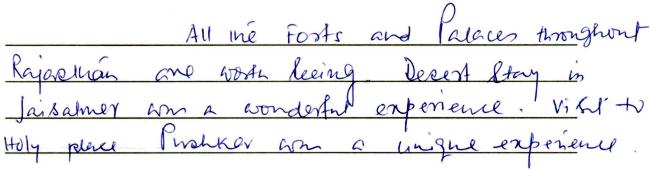 All the Forts and Palaces throughout
Rajasthan are worth seeing. Desert Stay in
Jaisalmer was a wonderful experience. Visit to
Holy place Pushkar was a unique experience.